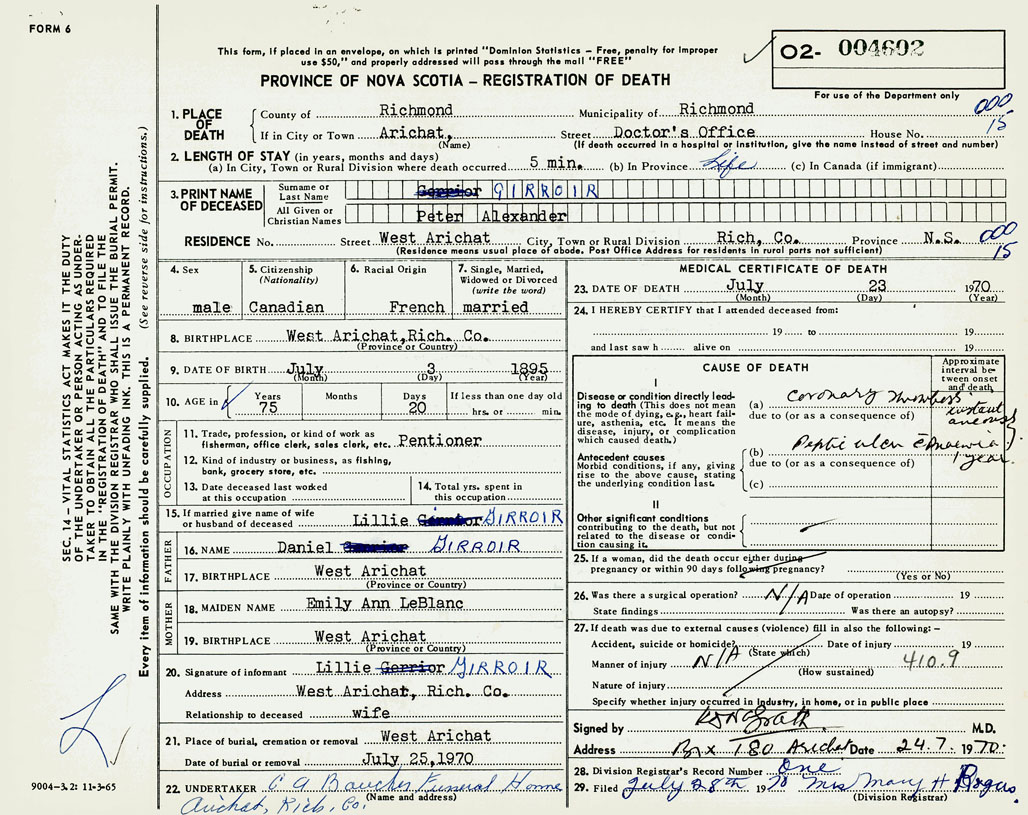 FORM 6
This form, if placed in an envelope, on which is printed "Dominion Statistics – Free, penalty for improper
use $50," and properly addressed will pass through the mail "FREE"
PROVINCE OF NOVA SCOTIA – REGISTRATION OF DEATH
O2- 004602
For use of the Department only
SEC. 14 – VITAL STATISTICS ACT MAKES IT THE DUTY
OF THE UNDERTAKER OR PERSON ACTING AS UNDER-
TAKER TO OBTAIN ALL THE PARTICULARS REQUIRED
IN THE "REGISTRATION OF DEATH" AND TO FILE THE
SAME WITH THE DIVISION REGISTRAR WHO SHALL ISSUE THE BURIAL PERMIT.
WRITE PLAINLY WITH UNFADING INK. THIS IS A PERMANENT RECORD.
Every item of information should be carefully supplied. (See reverse side for instructions.)
1. PLACE OF DEATH
County of Richmond Municipality of Richmond 000
15
If in City or Town Arichat, Street Doctor's Office House No.
(Name) (If death occurred in a hospital or institution, give the name instead of street and number)
2. LENGTH OF STAY (in years, months and days)
(a) In City, Town or Rural Division where death occurred 5 min. (b) In Province Life (c) In Canada (if immigrant)
3. PRINT NAME OF DECEASED
Surname or Last Name Gerrior GIRROIR
All Given or Christian Names Peter Alexander
RESIDENCE No. Street West Arichat City, Town or Rural Division Rich, Co. Province N.S. 000
15
(Residence means usual place of abode. Post Office Address for residents in rural parts not sufficient)
4. Sex
male
5. Citizenship
(Nationality)
Canadian
6. Racial Origin
French
7. Single, Married,
Widowed or Divorced
(write the word)
married
8. BIRTHPLACE West Arichat,Rich. Co.
(Province or Country)
9. DATE OF BIRTH July 3 1895
(Month) (Day) (Year)
10. AGE in
Years Months Days If less than one day old
75 20 hrs. or min.
OCCUPATION
11. Trade, profession, or kind of work as
fisherman, office clerk, sales clerk, etc. Pentioner
12. Kind of industry or business, as fishing,
bank, grocery store, etc.
13. Date deceased last worked
at this occupation
14. Total yrs. spent in
this occupation
15. If married give name of wife
or husband of deceased Lillie Gerrior GIRROIR
FATHER
16. NAME Daniel Gerrior GIRROIR
17. BIRTHPLACE West Arichat
(Province or Country)
MOTHER
18. MAIDEN NAME Emily Ann LeBlanc
19. BIRTHPLACE West Arichat
(Province or Country)
20. Signature of informant Lillie Gerrior GIRROIR
Address West Arichat, Rich. Co.
Relationship to deceased wife
21. Place of burial, cremation or removal West Arichat
Date of burial or removal July 25,1970
22. UNDERTAKER C A Boucher Funeral Home
(Name and address)
Arichat, Rich. Co.
9004-3.2: 11-3-65
MEDICAL CERTIFICATE OF DEATH
23. DATE OF DEATH July 23 1970
(Month) (Day) (Year)
24. I HEREBY CERTIFY that I attended deceased from:
19 to 19
and last saw h alive on 19
CAUSE OF DEATH
Approximate
interval be-
tween onset
and death
I
Disease or condition directly lead-
ing to death (This does not mean
the mode of dying, e.g., heart fail-
ure, asthenia, etc. It means the
disease, injury, or complication
which caused death.)
(a) Coronary Thrombosis instant
aneous
due to (or as a consequence of)
Antecedent causes
Morbid conditions, if any, giving
rise to the above cause, stating
the underlying condition last.
(b) Peptic ulcer c anaemia 1 year.
due to (or as a consequence of)
(c)
II
Other significant conditions
contributing to the death, but not
related to the disease or condi-
tion causing it.
25. If a woman, did the death occur either during
pregnancy or within 90 days following pregnancy?
(Yes or No)
26. Was there a surgical operation? N/A Date of operation 19
State findings Was there an autopsy?
27. If death was due to external causes (violence) fill in also the following: –
Accident, suicide or homicide? Date of injury 19
(State which)
Manner of injury N/A 410.9
(How sustained)
Nature of injury
Specify whether injury occurred in industry, in home, or in public place
Signed by M.D.
Address Box 180 Arichat Date 24.7. 1970.
28. Division Registrar's Record Number One
29. Filed July 28th 1970 Mrs Mary H
(Division Registrar)